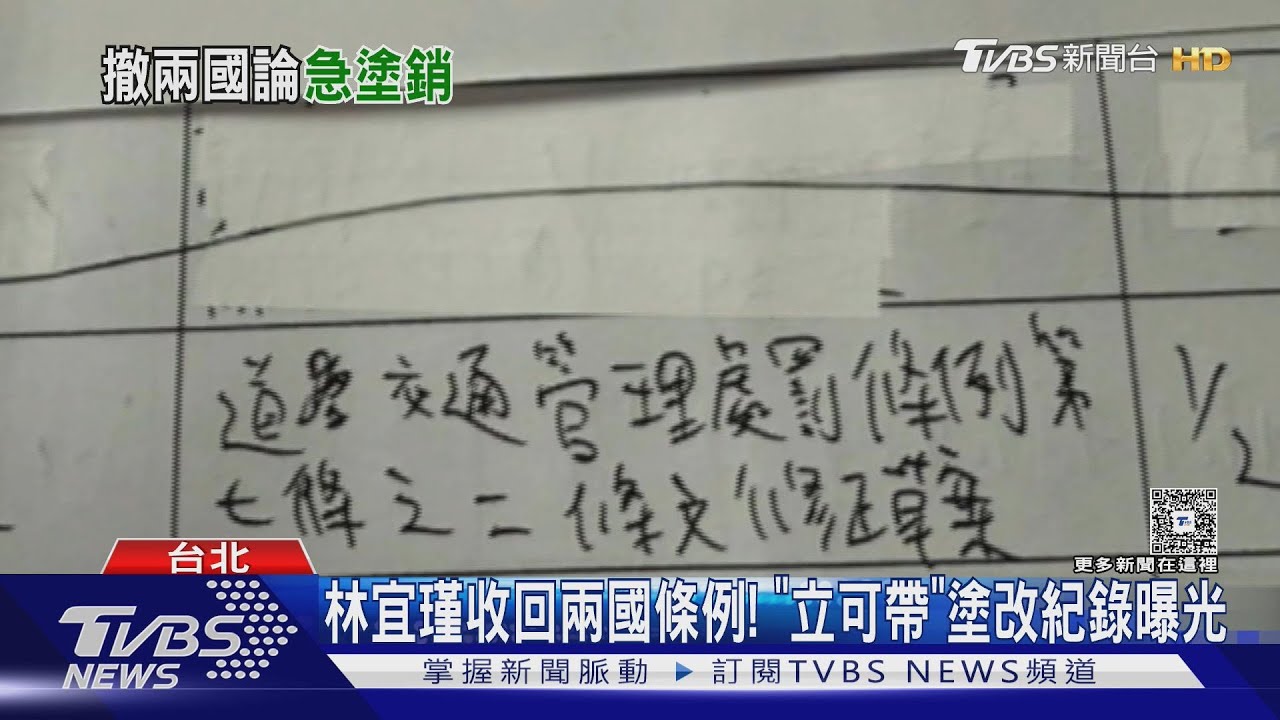 撤兩國論急塗銷
TVBS新聞台 HD
道路交通管理處罰條例第
七條之二條文修正草案
1/2
更多新聞在這裡
台北
林宜瑾收回兩國條例! "立可帶"塗改紀錄曝光
TVBS NEWS
掌握新聞脈動 訂閱TVBS NEWS頻道